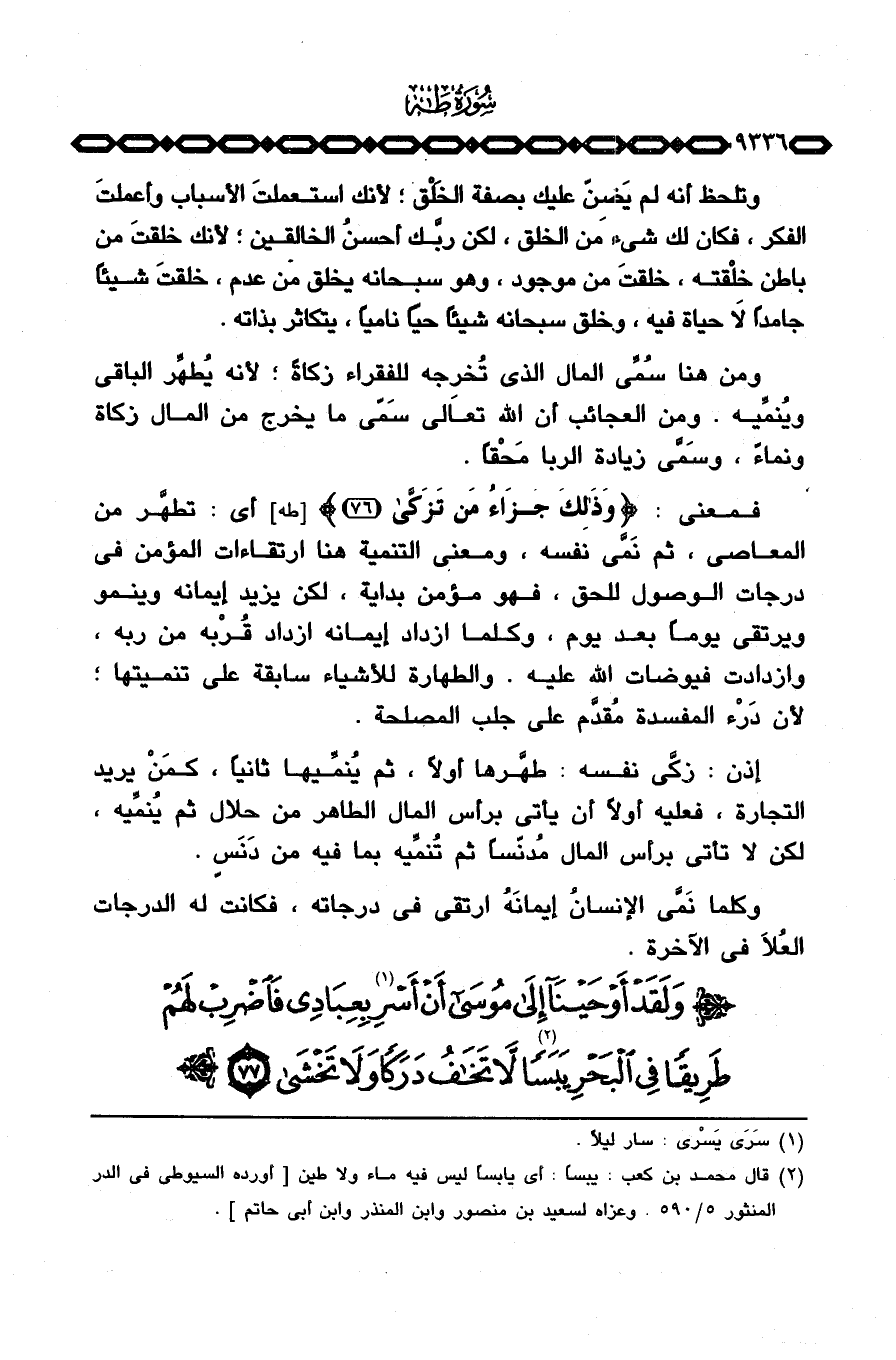 سُورَةُ طٰهٰ
٩٣٣٦
وتلحظ أنه لم يَضنّ عليك بصفة الخَلْق ؛ لأنك استعملتَ الأسباب وأعملتَ
الفكر ، فكان لك شىء من الخلق ، لكن ربَّك أحسنُ الخالقين ؛ لأنك خلقتَ من
باطن خلْقته ، خلقتَ من موجود ، وهو سبحانه يخلق من عدم ، خلقتَ شيئاً
جامداً لا حياة فيه ، وخلق سبحانه شيئاً حياً نامياً ، يتكاثر بذاته .
ومن هنا سُمِّى المال الذى تُخرجه للفقراء زكاةً ؛ لأنه يُطهِّر الباقى
ويُنمِّيه . ومن العجائب أن الله تعالى سَمَّى ما يخرج من المال زكاة
ونماءً ، وسمَّى زيادة الربا مَحْقاً .
فمعنى : ﴿ وَذَٰلِكَ جَزَاءُ مَن تَزَكَّىٰ (٧٦) ﴾ [طه] أى : تطهَّر من
المعاصى ، ثم نَمَّى نفسه ، ومعنى التنمية هنا ارتقاءات المؤمن فى
درجات الوصول للحق ، فهو مؤمن بداية ، لكن يزيد إيمانه وينمو
ويرتقى يوماً بعد يوم ، وكلما ازداد إيمانه ازداد قُرْبه من ربه ،
وازدادت فيوضات الله عليه . والطهارة للأشياء سابقة على تنميتها ؛
لأن دَرْء المفسدة مُقدَّم على جلب المصلحة .
إذن : زكَّى نفسه : طهَّرها أولاً ، ثم يُنمِّيها ثانياً ، كمَنْ يريد
التجارة ، فعليه أولاً أن يأتى برأس المال الطاهر من حلال ثم يُنمِّيه ،
لكن لا تأتى برأس المال مُدنّساً ثم تُنمِّيه بما فيه من دَنَسٍ .
وكلما نَمَّى الإنسانُ إيمانَهُ ارتقى فى درجاته ، فكانت له الدرجات
العُلاَ فى الآخرة .
﴿ وَلَقَدْ أَوْحَيْنَآ إِلَىٰ مُوسَىٰٓ أَنْ أَسْرِ (١) بِعِبَادِى فَٱضْرِبْ لَهُمْ
طَرِيقًا فِى ٱلْبَحْرِ يَبَسًا (٢) لَّا تَخَٰفُ دَرَكًا وَلَا تَخْشَىٰ ٧٧ ﴾
(١) سَرَى يَسْرى : سار ليلاً .
(٢) قال محمد بن كعب : يبساً : أى يابساً ليس فيه ماء ولا طين [ أورده السيوطى فى الدر
المنثور ٥/ ٥٩٠ . وعزاه لسعيد بن منصور وابن المنذر وابن أبى حاتم ] .